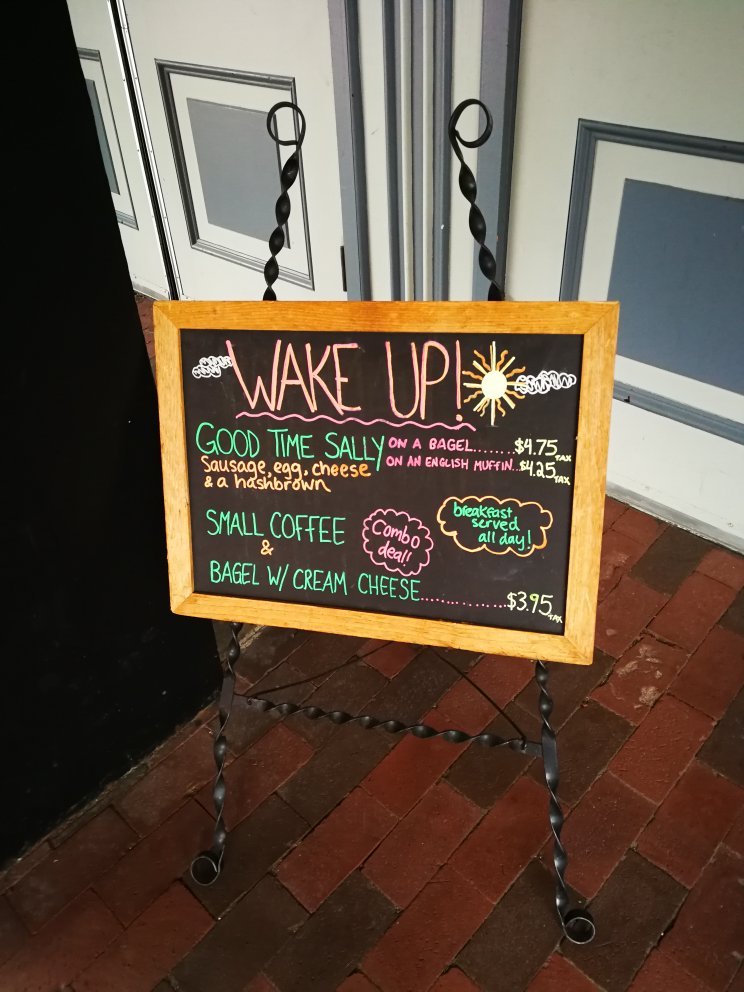 WAKE UP!
GOOD TIME SALLY ON A BAGEL........$4.75 TAX
Sausage, egg, cheese ON AN ENGLISH MUFFIN..$4.25 TAX
& a hashbrown
SMALL COFFEE
&
BAGEL W/ CREAM CHEESE...............$3.95 TAX
Combo
deal!
breakfast
served
all day!